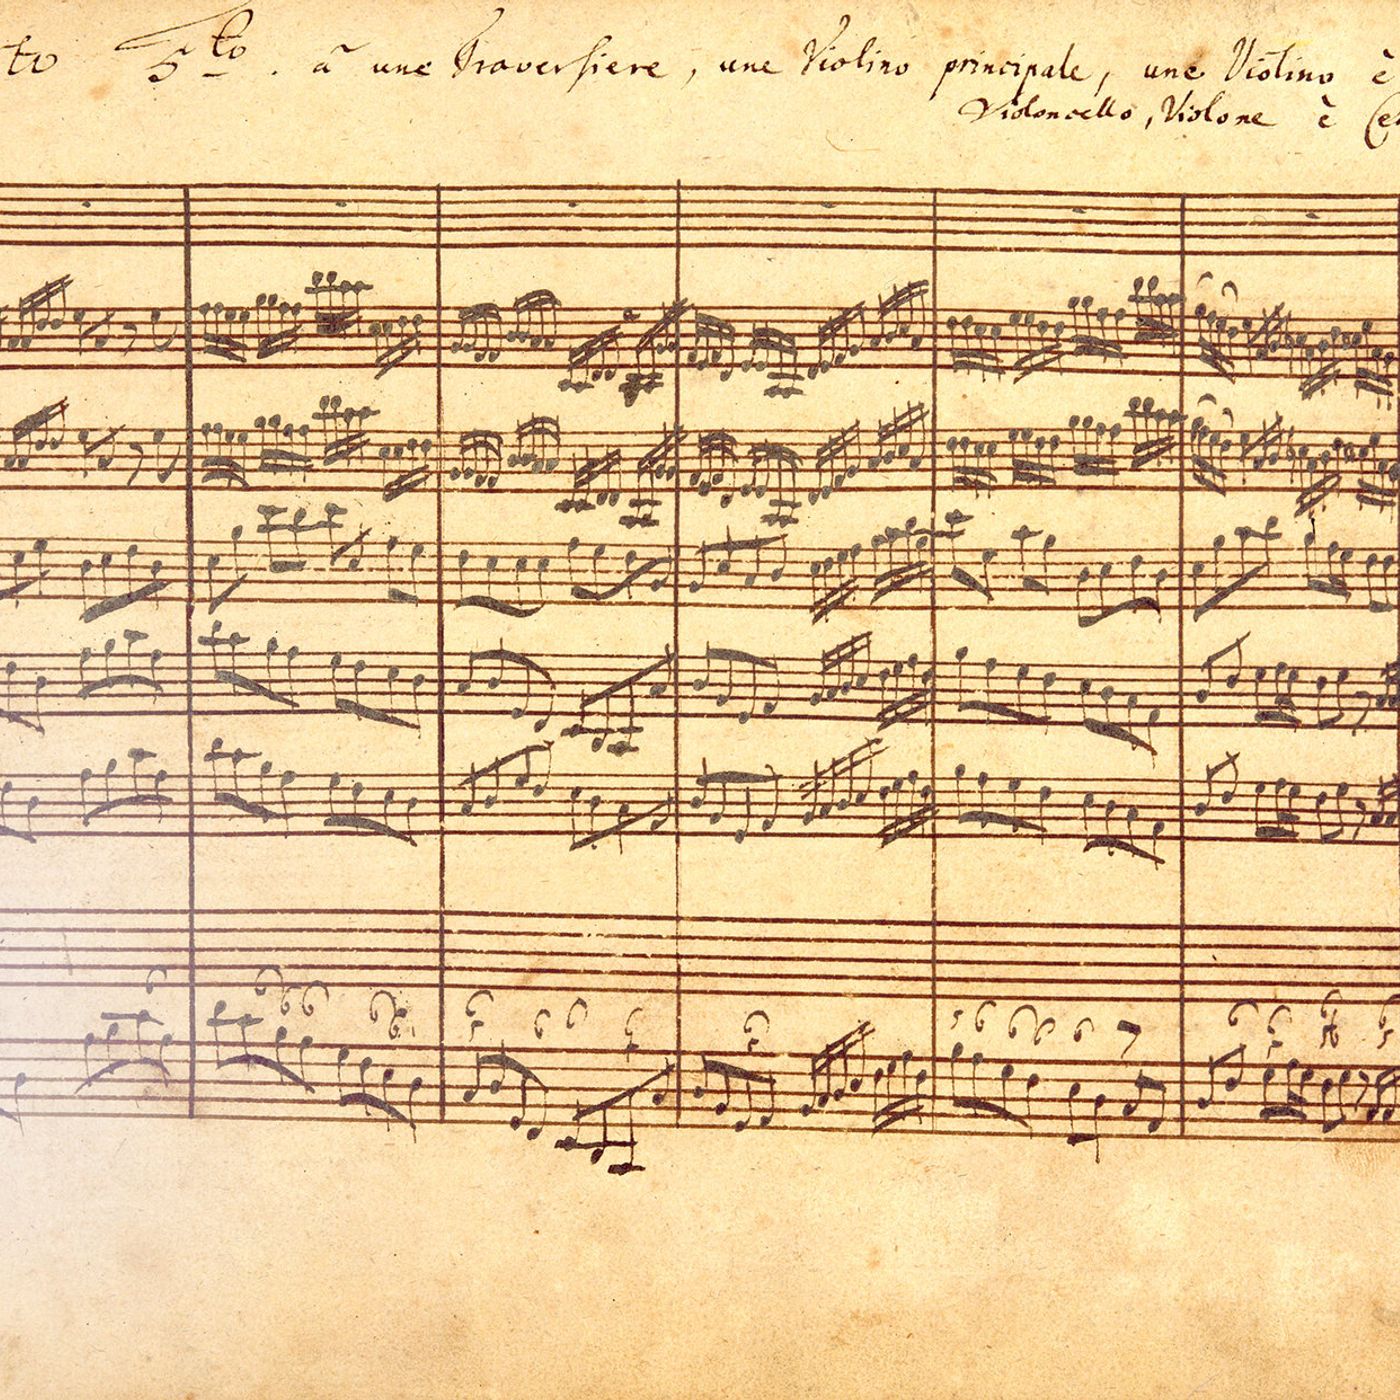 to 5to. â une Traversiere, une Violino principale, une Violino è
Violoncello, Violone è Ce